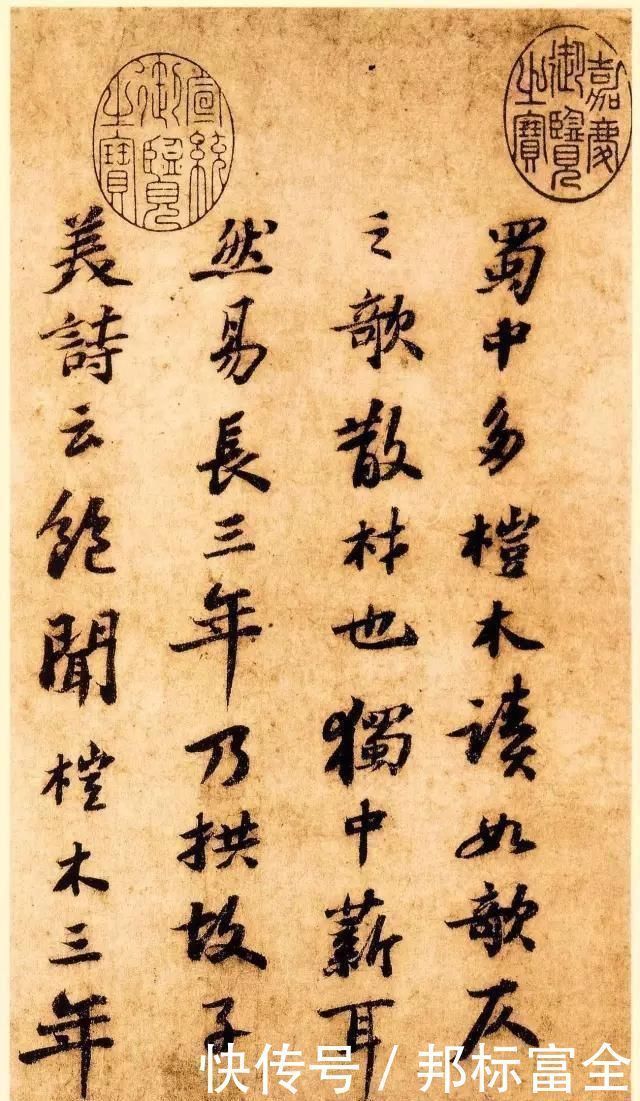 嘉慶御覽之寶
宣統御覽之寶
蜀中多榿木讀如欹仄
之欹散材也獨中薪耳
然易長三年乃拱故子
美詩云飽聞榿木三年
快传号 / 邦标富全